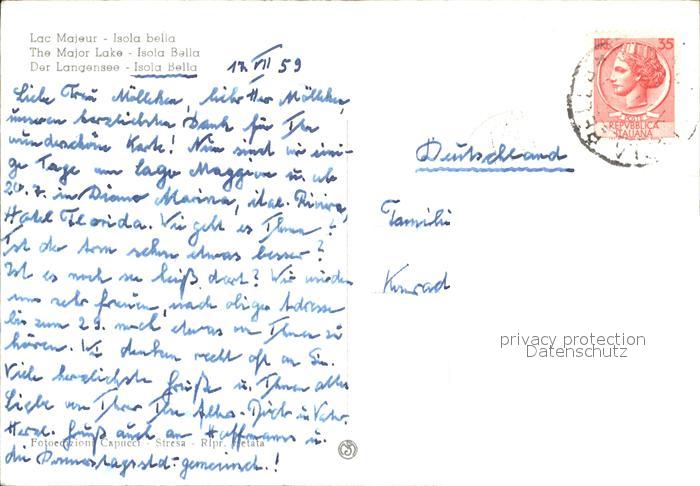 Lac Majeur - Isola bella
The Major Lake - Isola Bella
Der Langensee - Isola Bella
17.VII 59
LIRE 35
POSTE
REPVBBLICA
ITALIANA
Liebe Frau Mölleken, lieber Herr Mölleken,
unseren herzlichsten Dank für Ihre
wunderschöne Karte! Nun sind wir eini-
ge Tage am Lago Maggiore u. ab
20.7. in Diano Marina, ital. Riviera,
Hotel Florida. Wie geht es Ihnen?
Ist der Arm schon etwas besser?
Ist es noch so heiß dort? Wir würden
uns sehr freuen, nach obiger Adresse
bis zum 29. noch etwas von Ihnen zu
hören. Wir denken recht oft an Sie.
Viele herzlichste Grüße u. Ihnen alles
Liebe von Ihrer
Herzl. Grüße auch an Hoffmanns u.
die
Deutschland
Familie
Konrad
privacy protection
Datenschutz
Fotoedizioni Capucci - Stresa - Ripr. vietata